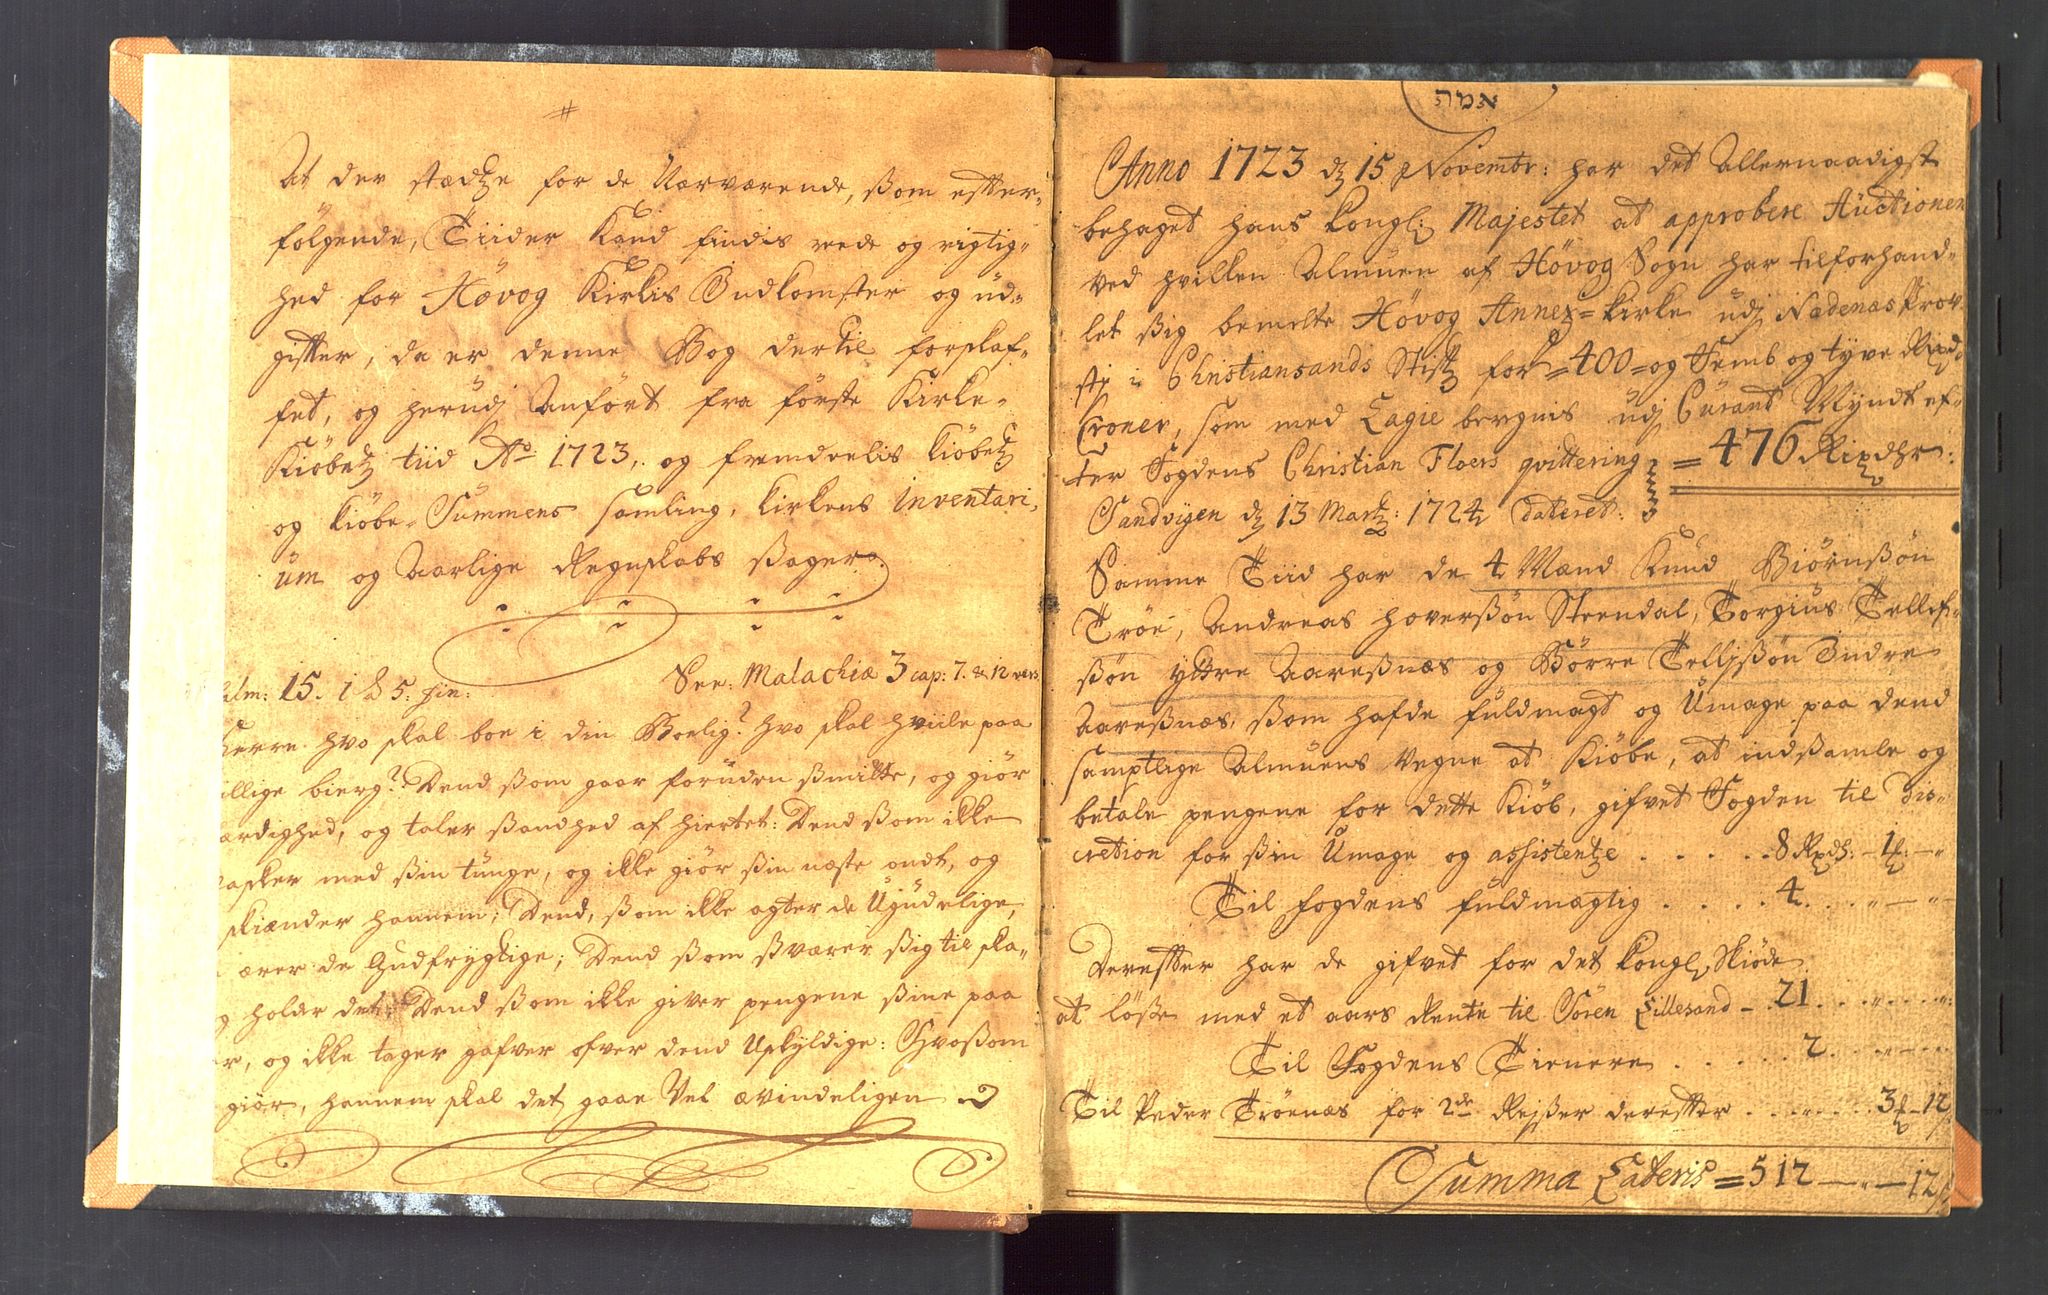 #
At der stædtze for de Nærværende, ßom effter-
fölgende, Tiider Kand findis rede og rigtig-
hed for Hövog Kirkis Indkomster og üd-
gifter, da er denne Bog dertil forskaf-
fet, og herudj Anfört fra förste Kirke-
Kiöbetz tiid Ao 1723, og fremdeelis kiöbetz
og kiöbe-Summens samling, kirkens inventari-
um og Aarlige Regnskabs Sager.
Psalm: 15. 1 til 5. hin: See: Malachiæ 3 cap: 7. & 12 vers
Herre hvo skal boe i din Boelig? hvo skal hviile paa
hellige bierg? Dend ßom gaar foruden ßmitte, og giör
retfærdighed, og taler ßandhed af hiertet: Dend ßom ikke
bagtasker med ßin tunge, og ikke giör ßin næste ondt, og
skiænder hannem: Dend, ßom ikke agter de Ugudelige,
ærer de Gudfrygtige; Dend ßom ßværer ßig til ska-
og holder det: Dend ßom ikke giver pengene ßine paa
aager, og ikke tager gafver ofver dend Uskyldige: Hvoßom
giör, hannem skal det gaae Vel ævindeligen
אמה
Anno 1723 dz 15 Novembr: har det Allernaadigst
behaget hans kongl: Majestet at approbere Auctionen
ved hvilken Almuen af Hövog Sogn har tilforhand-
let ßig bemelte Hövog Annex=kirke udj Nædenæs Prov-
stj i Christiansands Stift for =400= og Femb og tyve Rixd
Croner, som med Lagie beregnis udj Curant Myndt ef-
ter Fogdens Christian Floers qvittering = 476 Rixdlr:
Sandvigen dz 13 Martz: 1724 Dateret:
Samme Tiid har de 4 Mænd Knud Biörnßön
Tröe, Andreas hoverßön Steendal, Torgius Tellef-
ßön yttre Aareßnæs og Börre Telljßön Indre
Aareßnæs, ßom hafde fuldmagt og Umage paa dend
samptlige Almuens Vegne at Kiöbe, at indßamle og
betale pengene for dette Kiöb, gifvet Fogden til Dis-
cretion for ßin Umage og assistentze . . . . . 8 Rixdr: - 
Til fogdens fuldmægtig . . . . 4. . . „ — „
Dereffter har de gifvet for det kongl: Skiöde
at löße med et aars Rente til Sören Lillesand - 21 . . . „ . . . „
Til Fogdens Tienere . . . . . 2. . . „ . . .
Til Peder Tröenæs for 2de Reyßer dereffter . . . . . 3 - 12
Summa Lateris = 512 — „ — 12